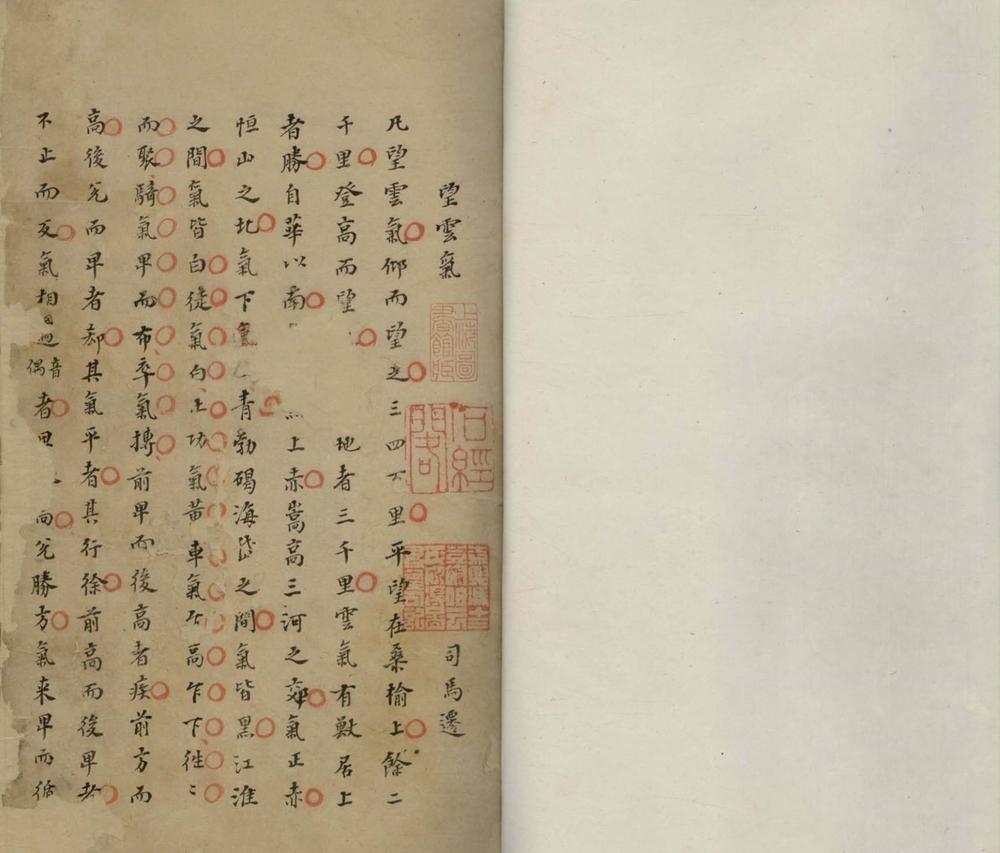 望雲氣 司馬遷
上海圖書館藏
石經閣
凡望雲氣仰而望之三四 里平望在桑榆上餘二
千里登高而望 地者三千里雲氣有獸居上
者勝自華以南 上赤嵩高三河之郊氣正赤
恒山之北氣下 青勃碣海岱之間氣皆黑江淮
之間氣皆白徒氣白土功氣黃車氣乍高乍下徃〻
而聚騎氣卑而布卒氣摶前卑而後高者疾前方而
高後兊而卑者却其氣平者其行徐前高而後卑者
不止而反氣相 音偶 者卑 兊勝方氣来卑而循